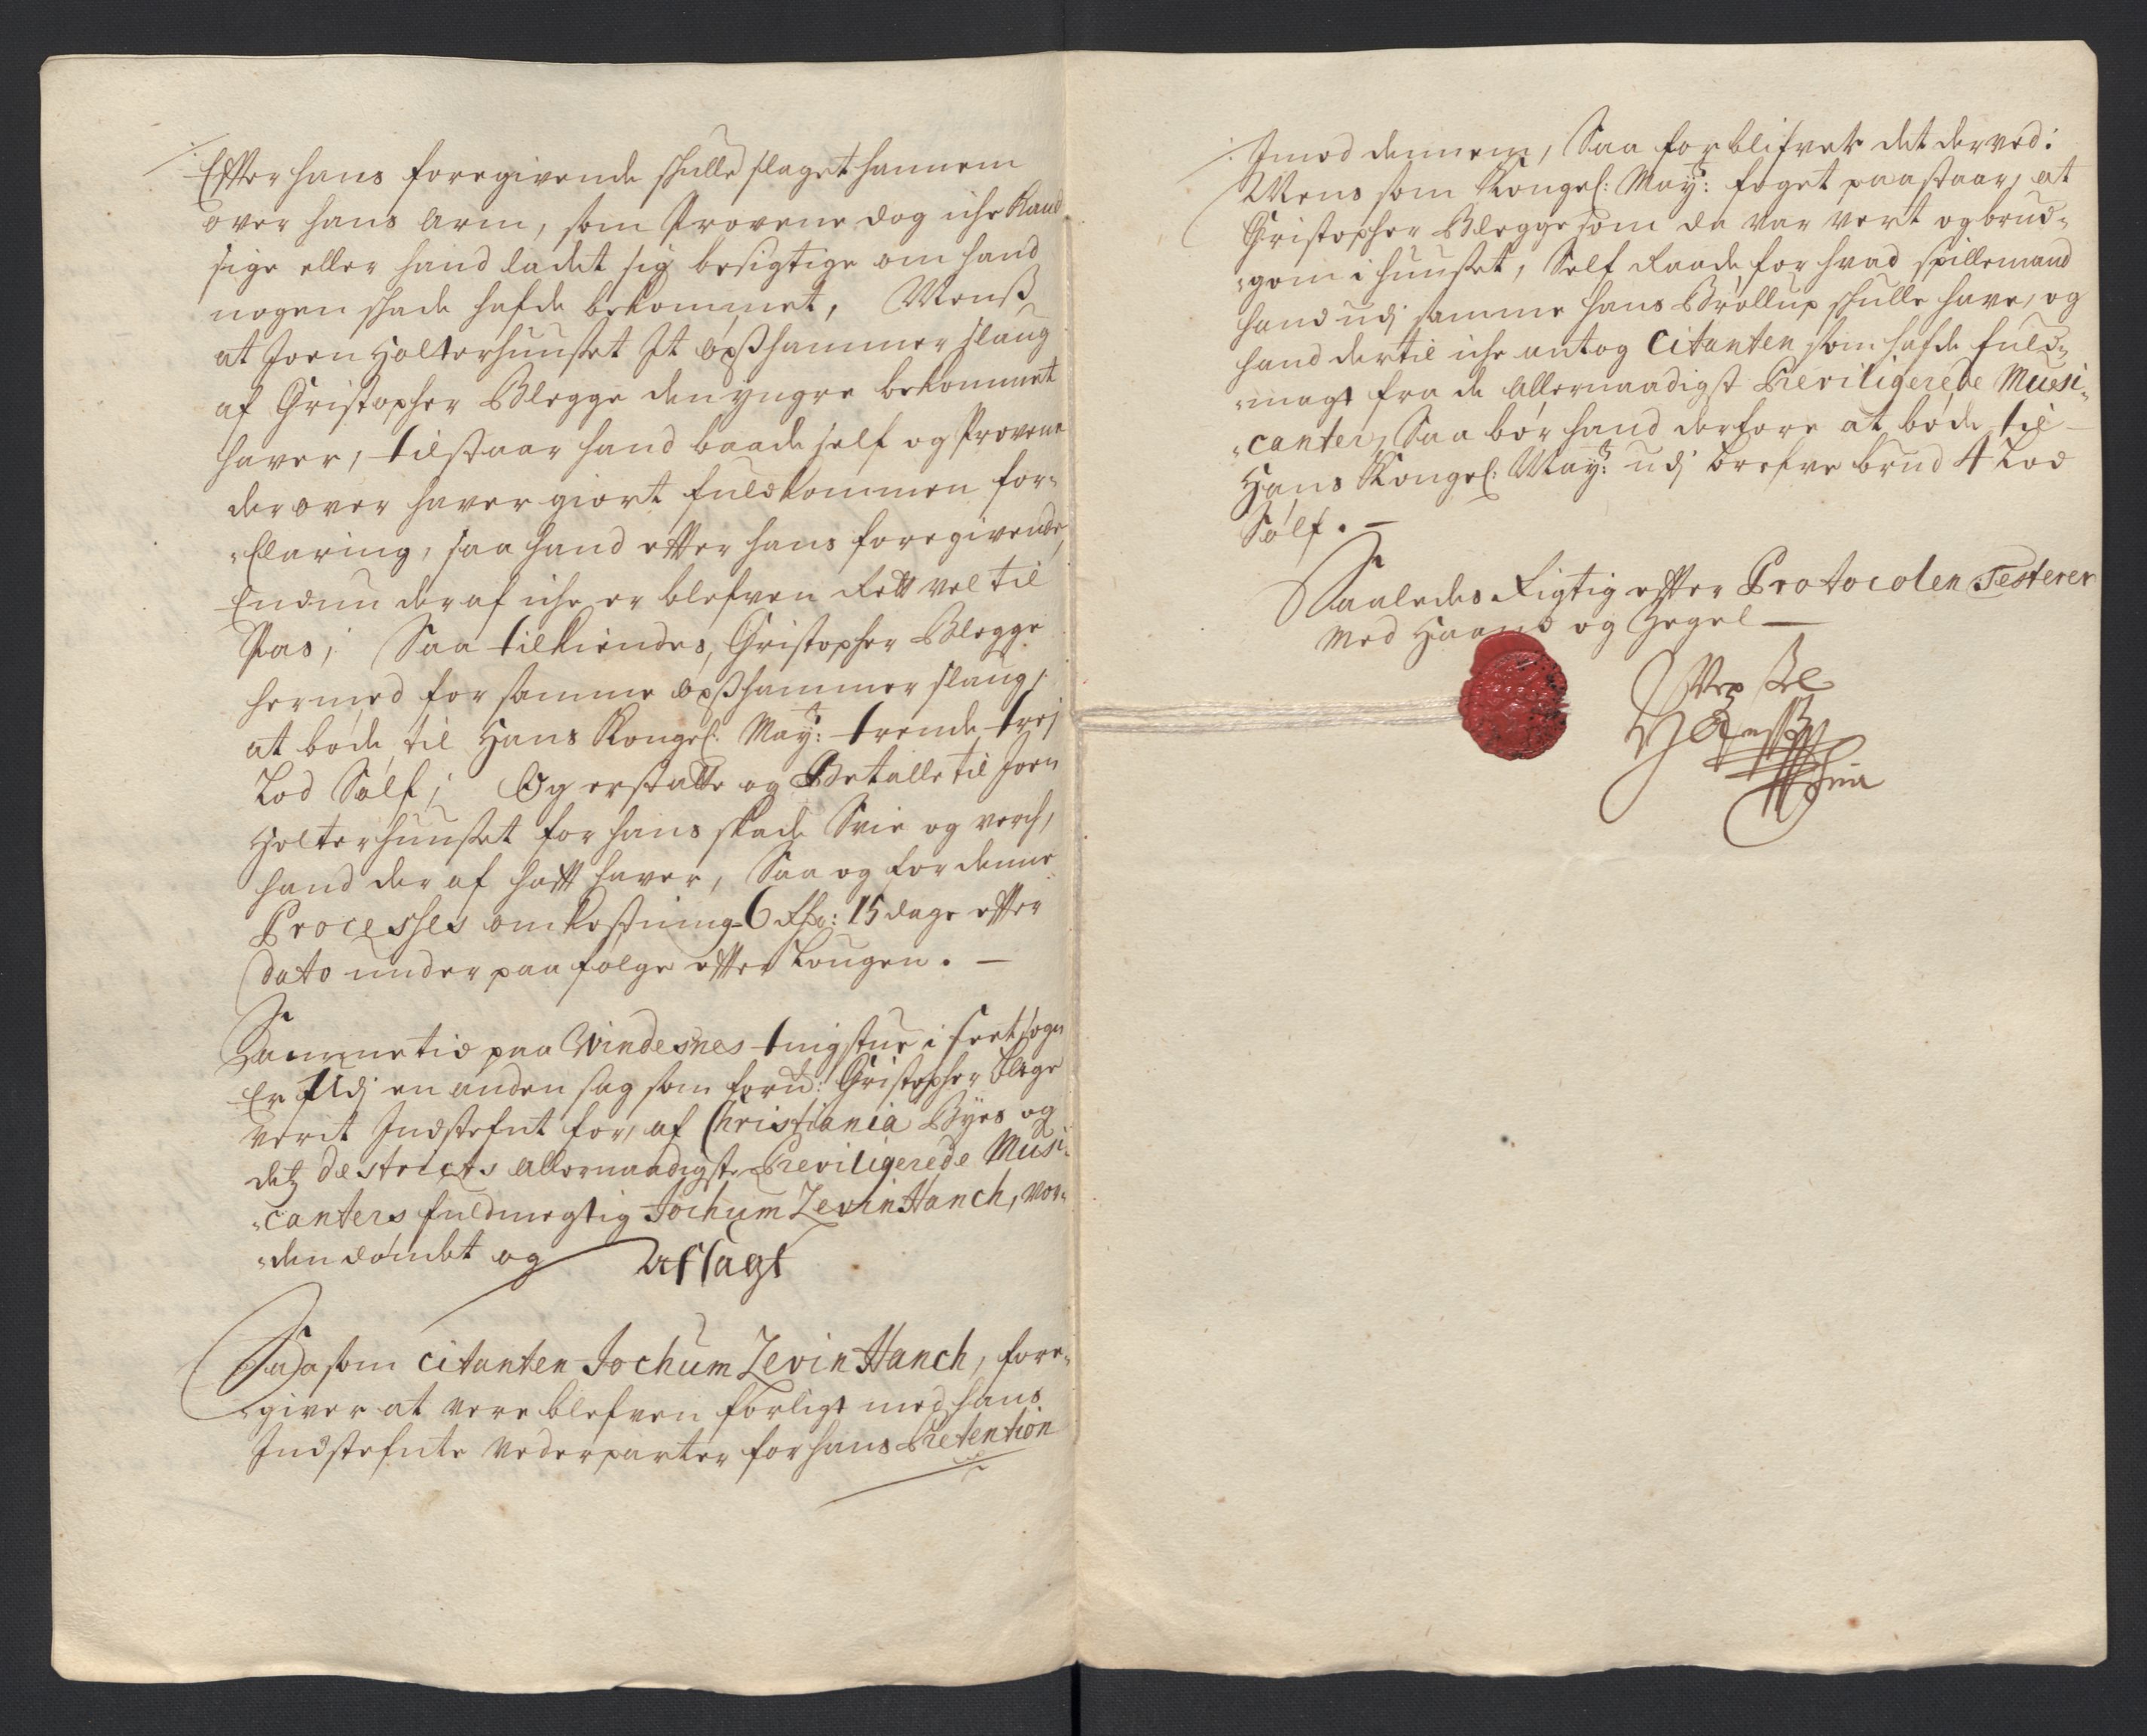 Efter hans foregivende skulle slaget hannem
over hans Arm, som Prøvene dog iche kand
sige eller hand ladet sig besigtige om hand
nogen skade hafde bekommet, Menß
at Joen Holterhuuset It øxßhammer slaug
af Christopher Blegge den yngre bekommet
haver, tilstaar hand baade self og Prøvene
der over haver giort fuldkommen for-
Claring, saa hand efter hans foregivende,
Endnu der af iche er blefven Rett vel til
Pas; Saa tilkiendes, Christopher Blegge
hermed for samme øxßhammer slaug,
at bøde til Hans Kongel: May: trende trej
Lod Sølf; Og erstatte og Betalle til Joen
Holterhuuset for hans skade Svie og verch,
hand der af haft haver, Saa og for denne
Processes omkostning 6 Rdr: 15 dage efter
dato under paafølge efter Lougen. -
Sammetid paa Windesnes tingstue i
Er Udj en anden sag som forn: Christopher Blege
verit Indstefnt for, af Christiania Byes og
detz destricts Allernaadigste Previligerede Musi-
canters fuldmegtig Jochum Levin Hanch, vor-
den dømbt og Afsagt
Saasom Citanten Jochum Levin Hanch, fore-
giver at vere blefven forligt med hans
Indstefnte vederparter for hans Pretention
Imod dennem, Saa forblifver det derved:
Mens som Kongel: May: foget paastaar, at
Christopher Blegge som da var vert og brud-
gom i huuset, Self Raade for hvad spillemand
hand udj samme hans Brøllup skulle have, og
hand dertil iche antog Citanten som hafde fuld-
magt fra de Allernaadigst Previligerede Musi-
canter, Saa bør hand derfore at bøde til
Hans Kongel: May: udj brefve brud 4 Lod
Sølf. -
Saaledes Rigtig efter Protocolen Testerer
Med Haand og Zegel